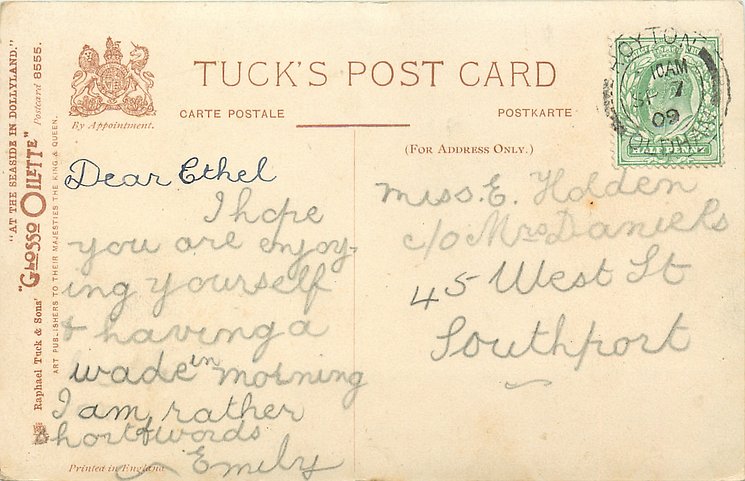 "AT THE SEASIDE IN DOLLYLAND."
"GLOSSO OILETTE" Postcard 8555.
Raphael Tuck & Sons'
ART PUBLISHERS TO THEIR MAJESTIES THE KING & QUEEN.
By Appointment.
TUCK'S POST CARD
CARTE POSTALE
POSTKARTE
(FOR ADDRESS ONLY.)
ROYTON
10AM
SP 7
09
OLDHAM
HALF PENNY
Dear Ethel
I hope
you are enjoy-
ing yourself
& having a
wade in morning
I am rather
short of words
Emily
Miss. E. Holden
c/o Mrs Daniels
45 West St
Southport
Printed in England